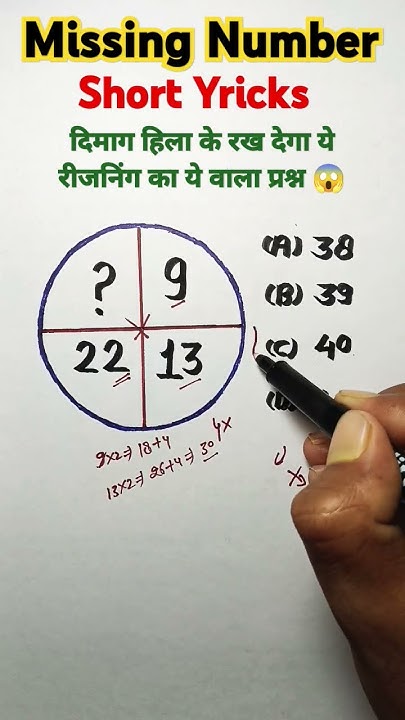 Missing Number
Short Yricks
दिमाग हिला के रख देगा ये
रीजनिंग का ये वाला प्रश्न 😱
? 9
22 13
(A) 38
(B) 39
(C) 40
9x2⇒18+4
13x2⇒26+4⇒30
4x